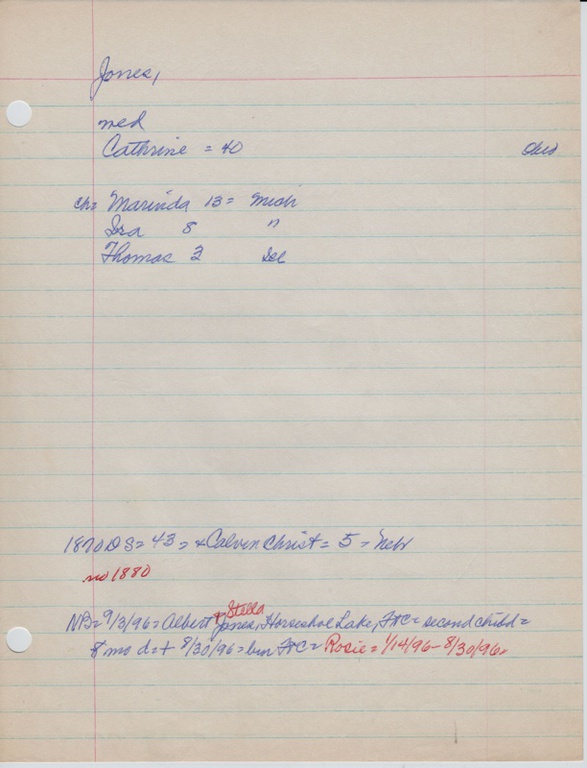 Jones,
med
Cathrine = 40 Ohio
ch= Marinda 13 = Mich
Ira 8 "
Thomas 2
1870 DS= 43 = + Calvin Christ = 5 = Nebr
no 1880
NPB= 9/3/96 = Albert & Stella Jones, Horseshoe Lake, FtC = second child =
8 mo d = + 8/30/96 = bur FtC = Rosie = 1/14/96 - 8/30/96